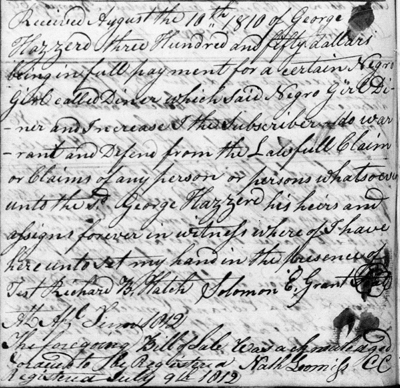 Received August the 10th 1810 of George
Hazzerd three Hundred and fifty dollars
being in full payment for a certain Negro
Girl called Diner which said Negro Girl Di-
ner and Increase I the Subscriber do war-
rant and Defend from the Lawfull Claim
or Claims of any person or persons whatsoever
unto the Sd George Hazzerd his heirs and
assigns forever in witness where of I have
here unto set my hand in the presence of
Test Richard B. Hatch Solomon E. Grant Seal
1812
The foregoing Bill of Sale was acknowledged
to Be Registered Nath Loomiss CC
Registered July 9th 1812